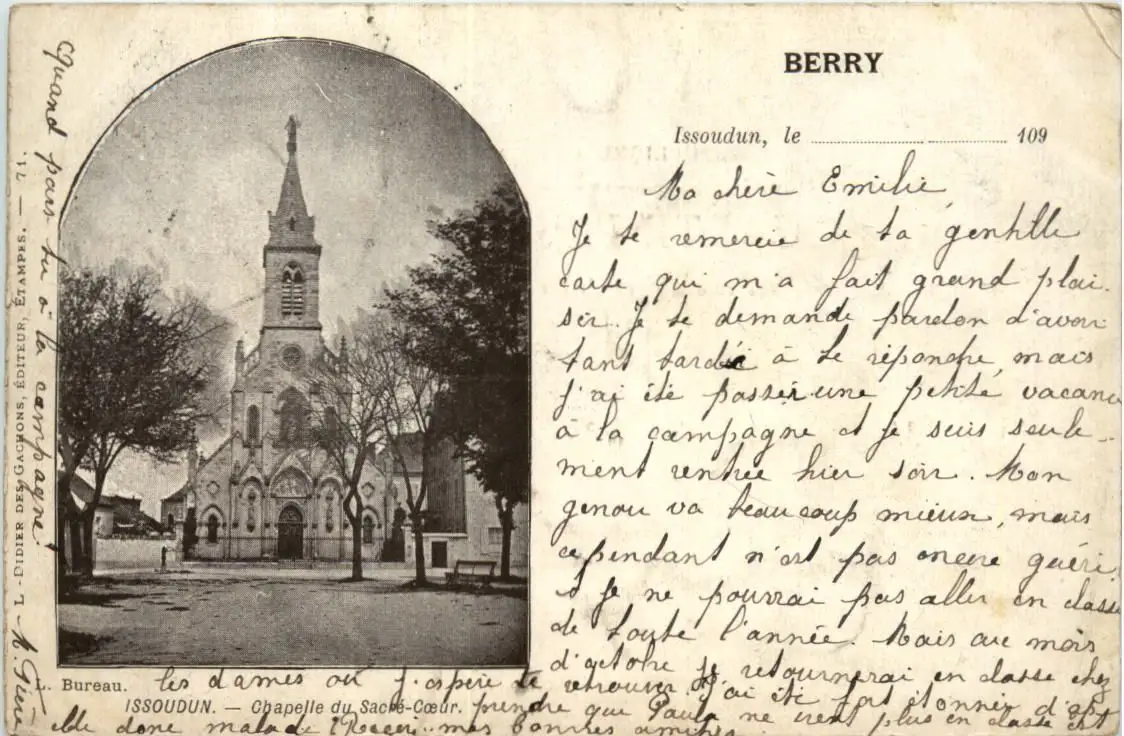 BERRY
Issoudun, le 109
Ma chère Emilie
Je te remercie de ta gentille
carte qui m'a fait grand plai-
sir. Je te demande pardon d'avoir
tant tardée à te répondre, mais
j'ai été passer une petite vacanc
à la campagne et je suis seule-
ment rentrée hier soir. Mon
genou va beaucoup mieux, mais
cependant n'est pas encore guéri
et je ne pourrai pas aller en classe
de toute l'année. Mais au mois
d'octobre je retournerai en classe chez
les dames où j'espère te retrouver. J'ai été fort étonnée d'ap
prendre que Paula ne vient plus en classe est
elle donc malade? Reçois mes bonnes amitiés
Quand pars tu à la campagne?
L. DIDIER DES GACHONS, ÉDITEUR, ÉTAMPES. — 71.
L. Bureau.
ISSOUDUN. — Chapelle du Sacré-Cœur.